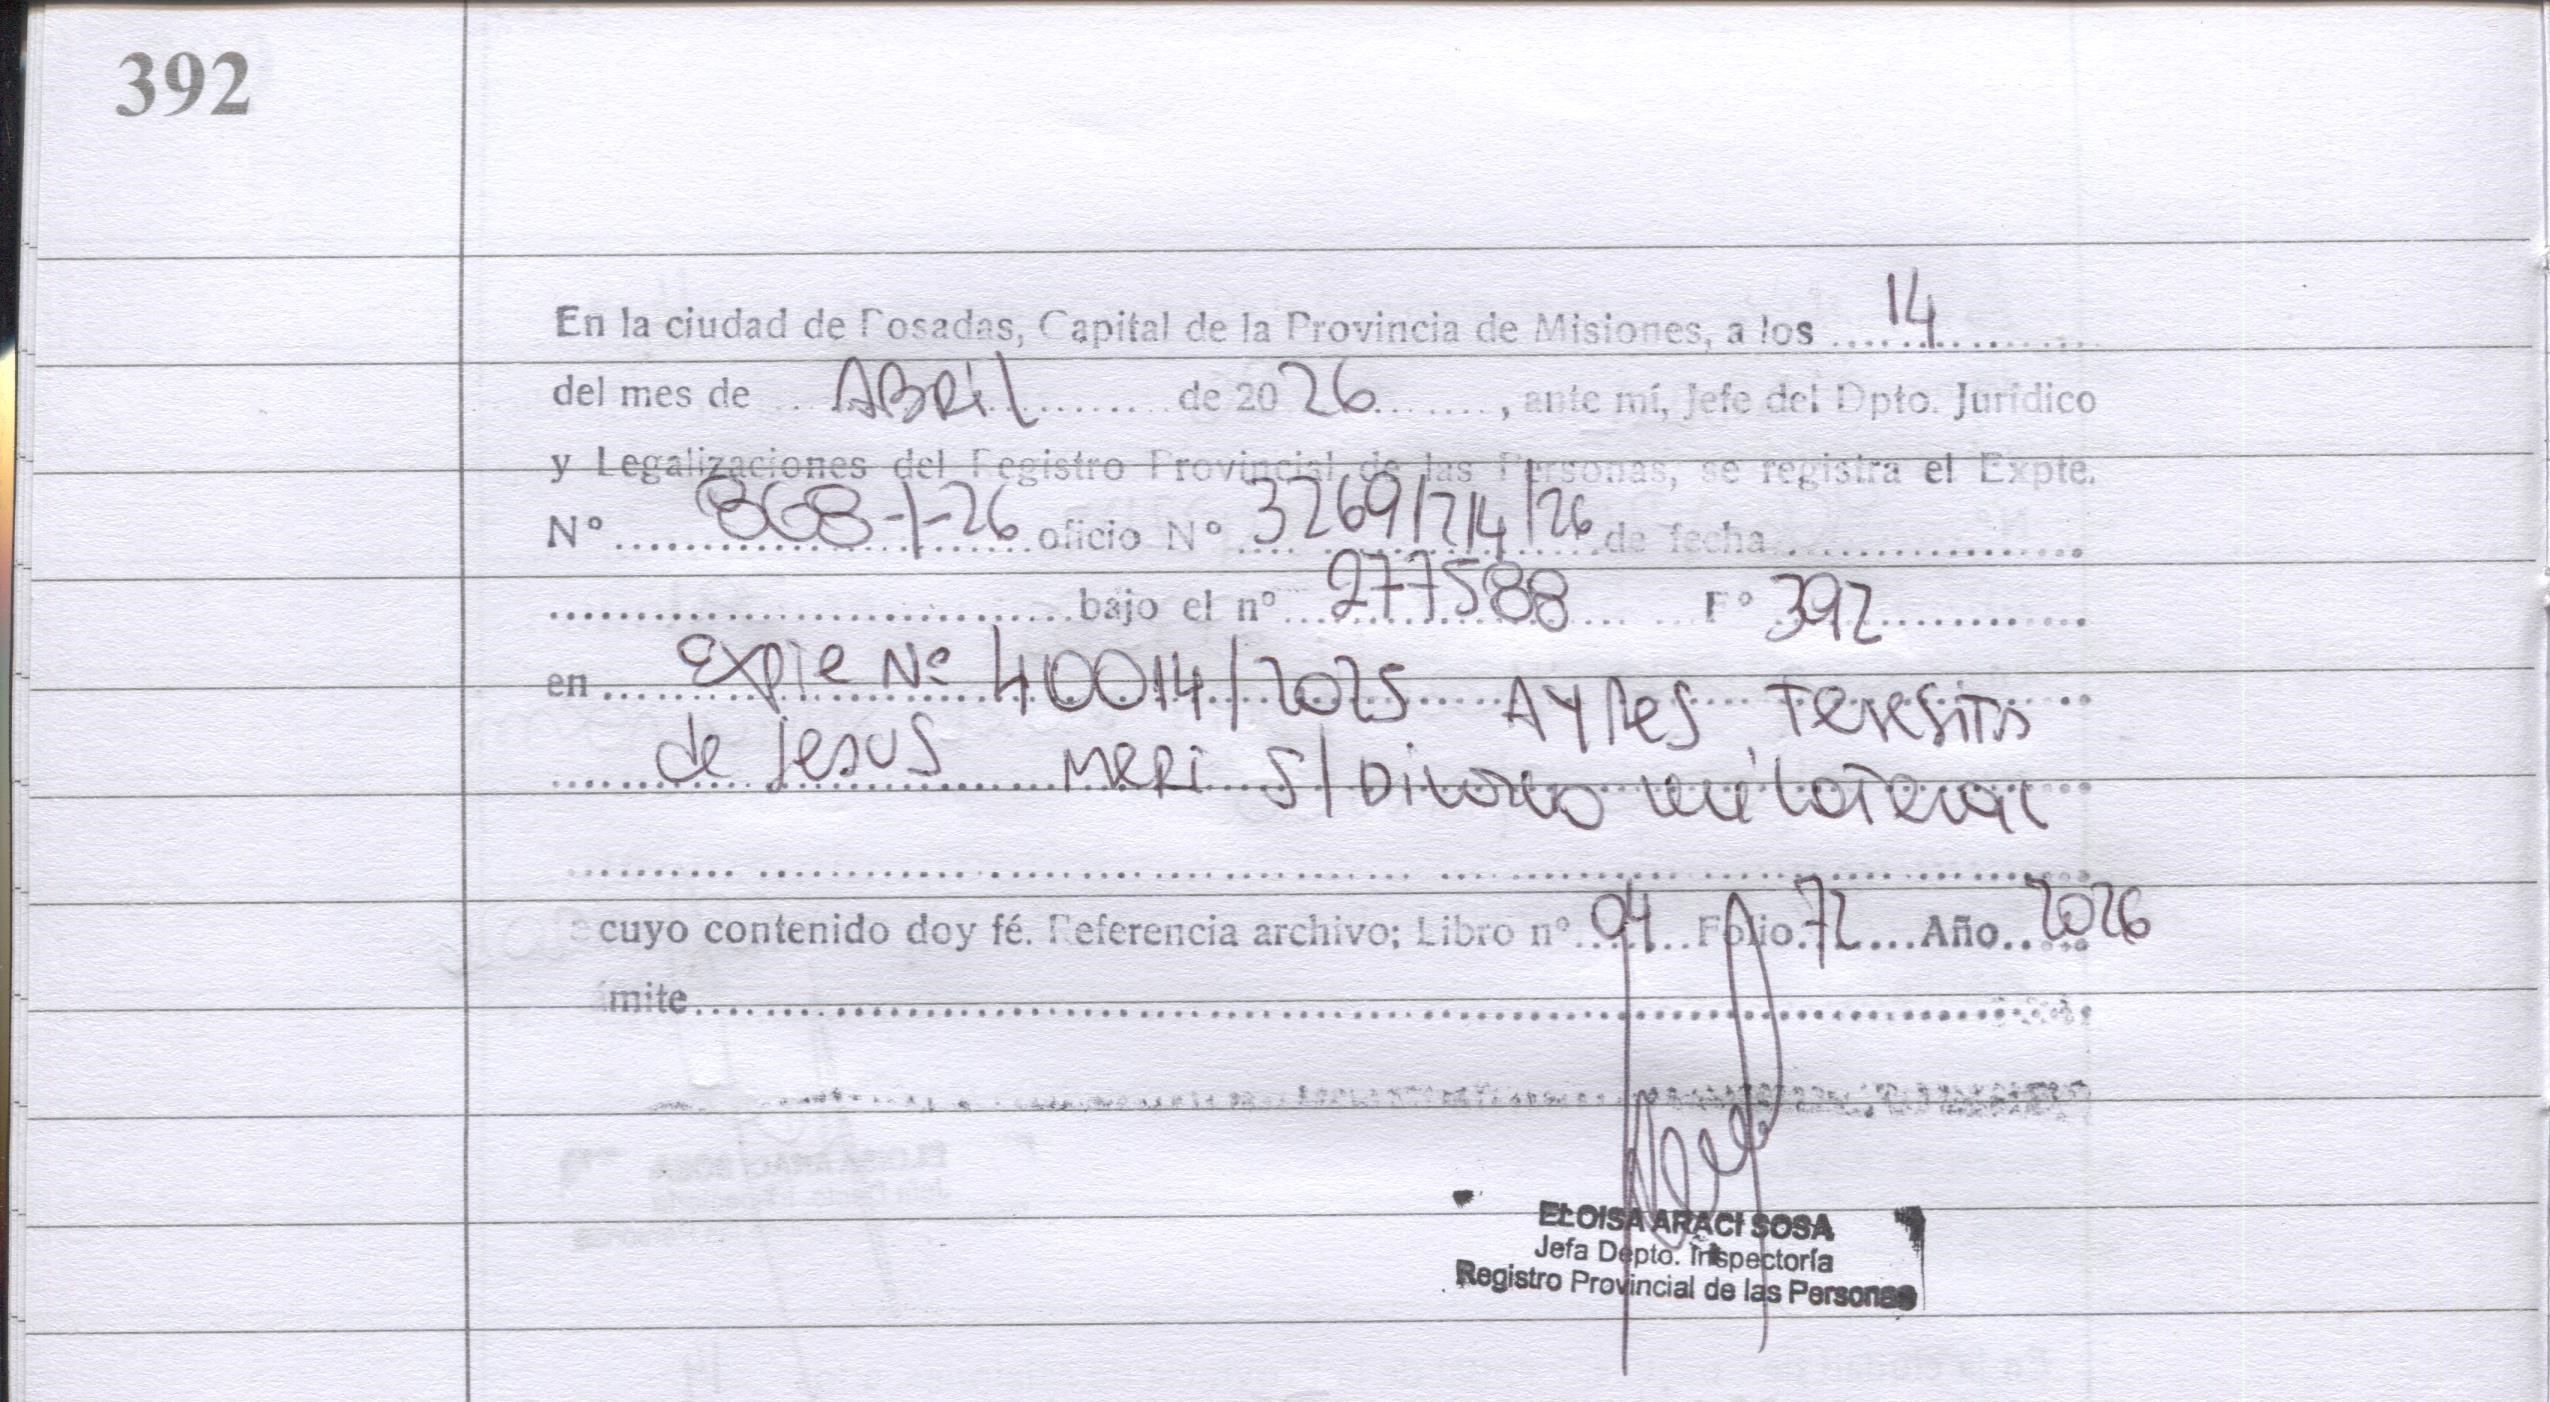 392
En la ciudad de Posadas, Capital de la Provincia de Misiones, a los 14
del mes de ABRil de 2026, ante mí, Jefe del Dpto. Jurídico
y Legalizaciones del Registro Provincial de las Personas, se registra el Expte.
Nº 868-1-26 oficio Nº 3269/214/26 de fecha
bajo el nº 277588 Fº 392
en Expte Nº 40014/2025 AYRES, Teresita
de Jesus MERI S/ Divorcio unilateral
cuyo contenido doy fé. Referencia archivo; Libro nº 04 Folio 72 Año 2026
ámite
ELOISA ARACI SOSA
Jefa Depto. Inspectoría
Registro Provincial de las Personas